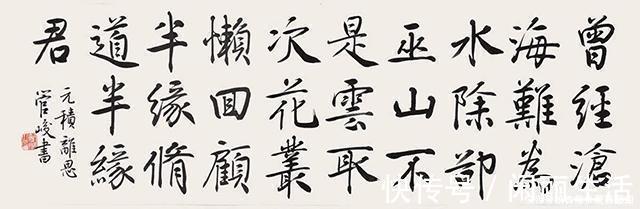 曾經滄
海難為
水除卻
巫山不
是雲取
次花叢
懶回顧
半緣脩
道半緣
君
元稹離思
管峻書
快传号